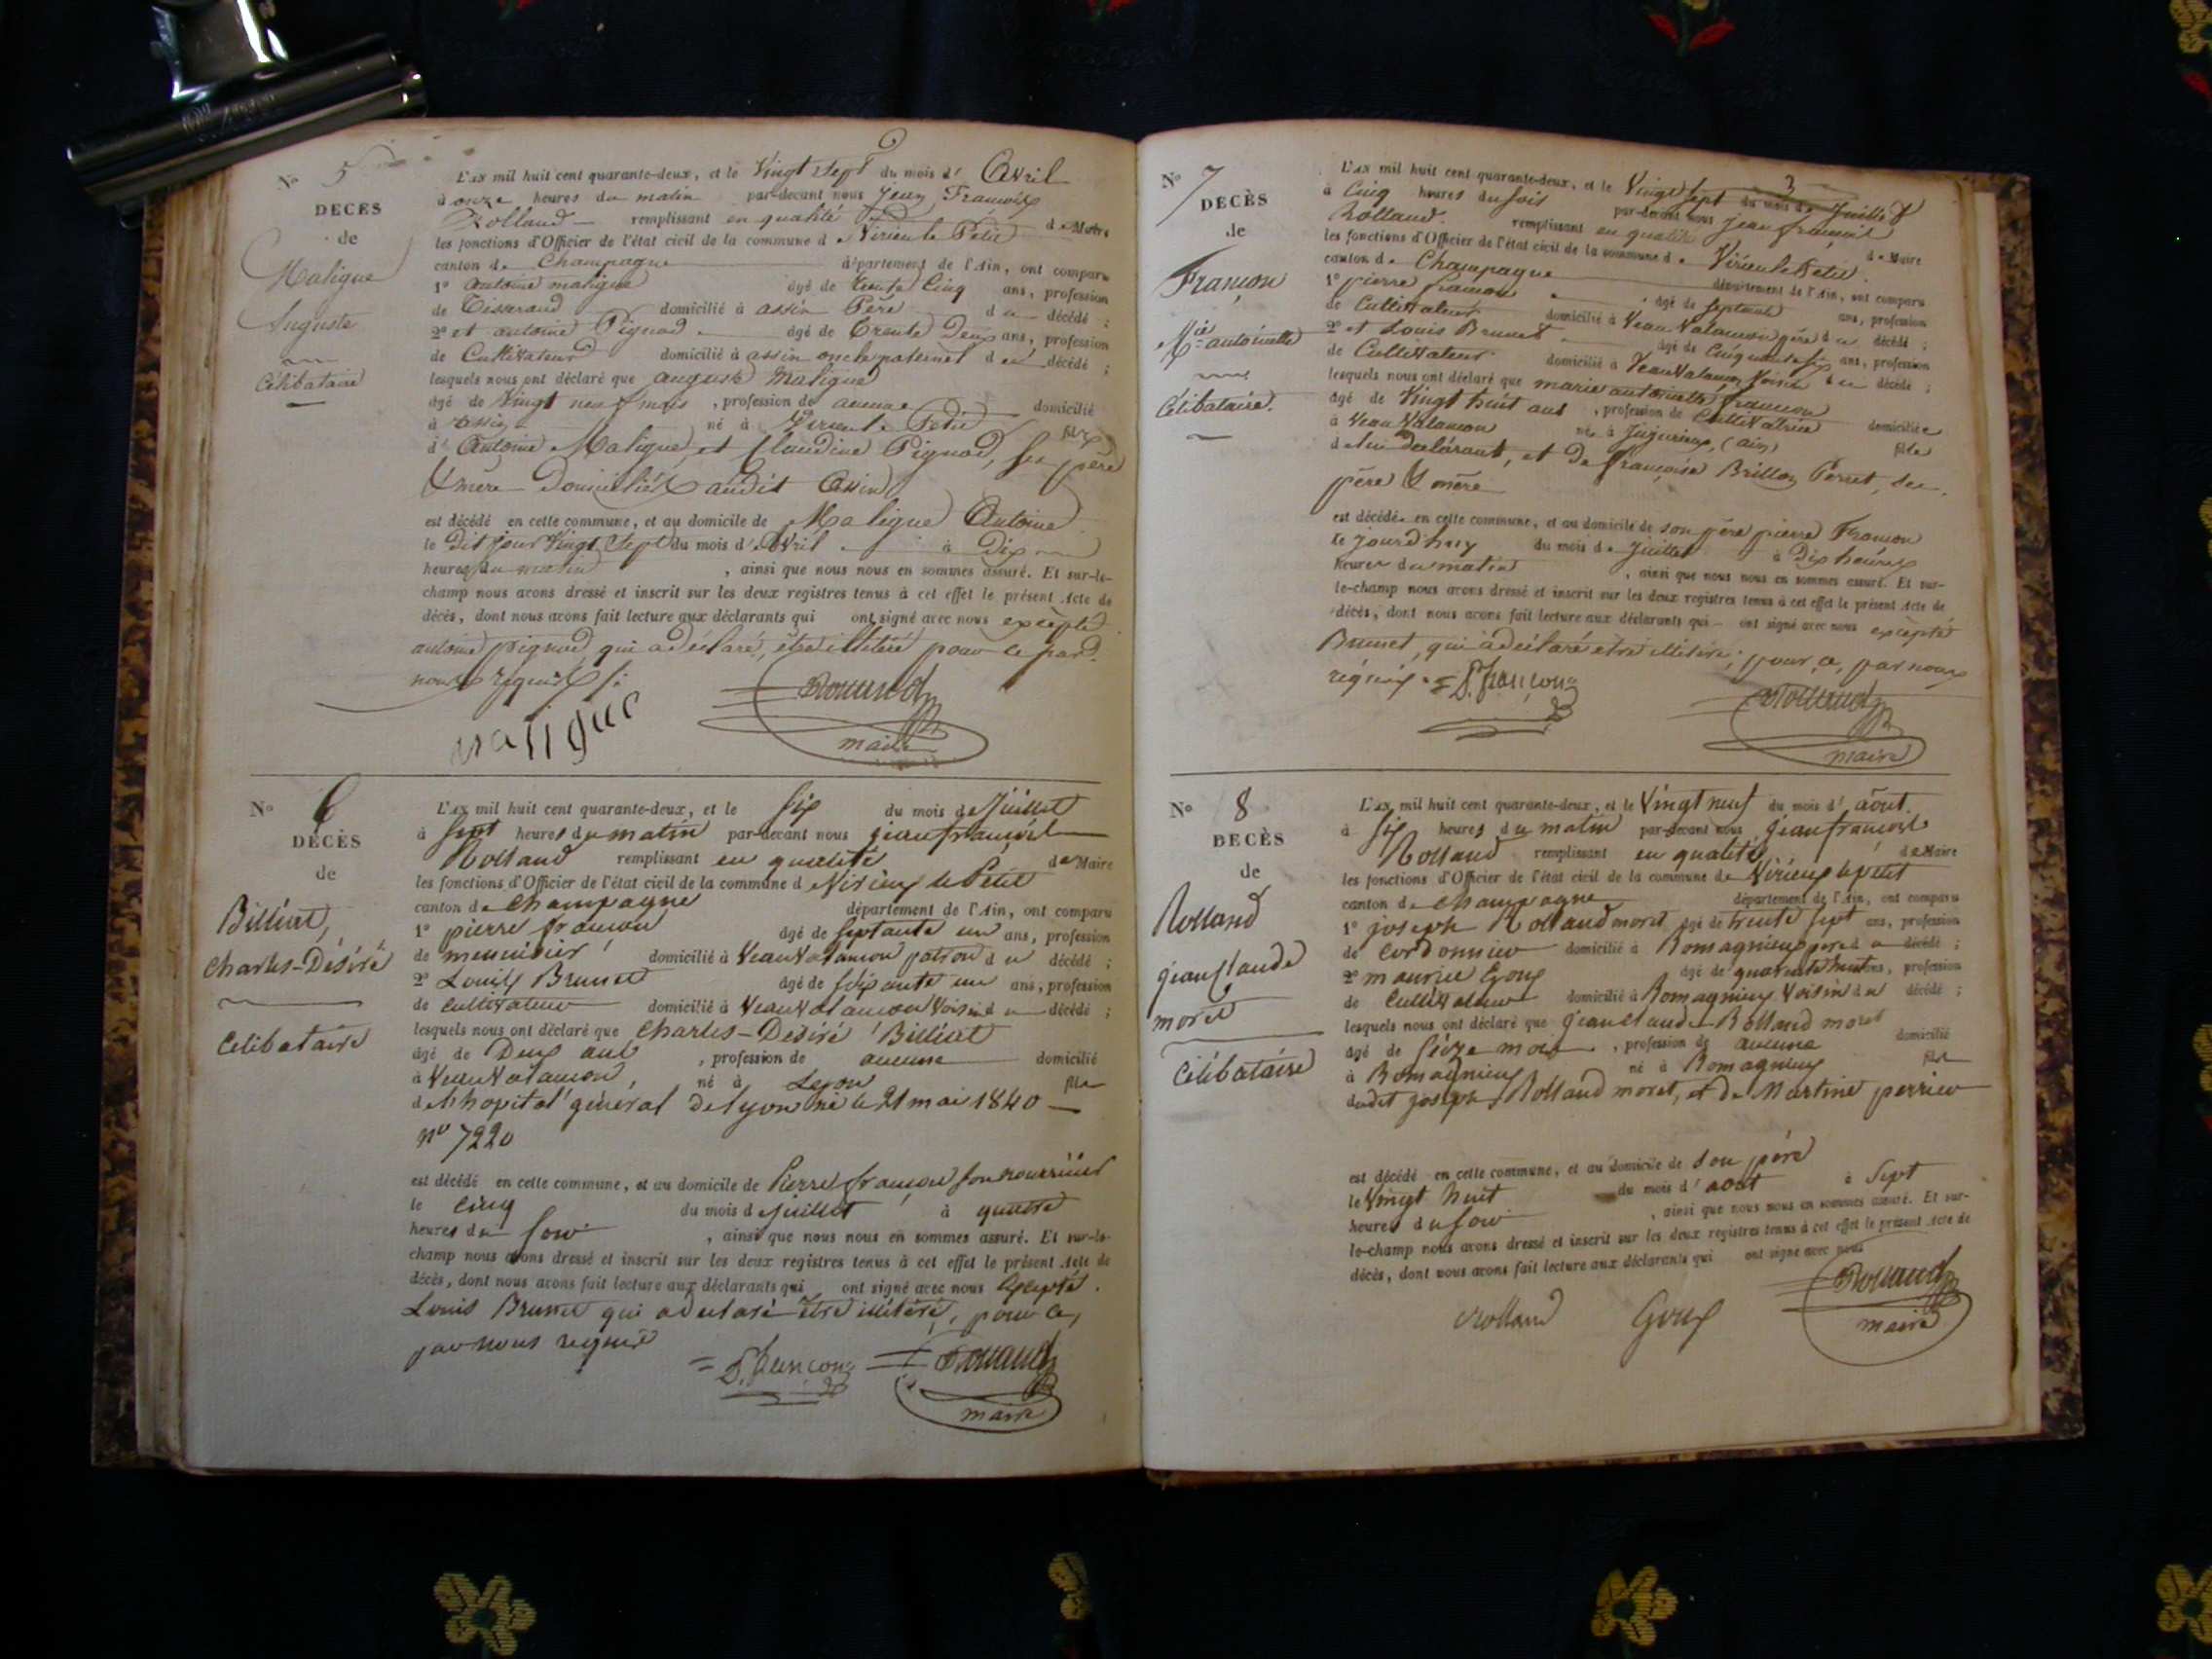 N° 5
DECÈS
de
Maligue
Auguste
Célibataire
L'AN mil huit cent quarante-deux, et le Vingt Sept du mois d' Avril
à onze heures du matin par-devant nous Jean François
Rolland remplissant en qualité de Maire
les fonctions d'Officier de l'état civil de la commune de Virieu le Petit
canton de Champagne département de l'Ain, ont comparu
1° Antoine maligue âgé de trente Cinq ans, profession
de Tisserand domicilié à assin Père du décédé ;
2° et antoine Pignod âgé de Trente Deux ans, profession
de Cultivateur domicilié à assin oncle paternel du décédé ;
lesquels nous ont déclaré que auguste Maligue
âgé de Vingt neuf mois , profession de aucune domicilié
à assin né à Virieu le Petit fils
d' Antoine Maligue, et Claudine Pignod, ses père
& mère Domiciliés audit Assin
est décédé en cette commune, et au domicile de Maligue Antoine
le Dit jour Vingt Sept du mois d' Avril à Dix
heures du matin , ainsi que nous nous en sommes assuré. Et sur-le-
champ nous avons dressé et inscrit sur les deux registres tenus à cet effet le présent Acte de
décès, dont nous avons fait lecture aux déclarants qui ont signé avec nous excepté
antoine pignod qui a déclaré, être illitéré pour ce par
nous requis
maligue
Rolland
maire
N° 6
DÉCÈS
de
Billiet,
Charles-Désiré
Célibataire
L'AN mil huit cent quarante-deux, et le Six du mois de Juillet
à Sept heures du matin par-devant nous jean françois
Rolland remplissant en qualité de Maire
les fonctions d'Officier de l'état civil de la commune d Virieux le Petit
canton de Champagne département de l'Ain, ont comparu
1° pierre françon âgé de septante un ans, profession
de meunier domicilié à VeauValancon patron du décédé ;
2° Louis Brunet âgé de soixante un ans, profession
de Cultivateur domicilié à VeauValancon Voisin du décédé ;
lesquels nous ont déclaré que Charles-Désiré Billiet
âgé de Deux ans , profession de aucune domicilié
à VeauValancon, né à Lyon fils
de l'hopital général de lyon né le 21 mai 1840
n° 7220
est décédé en cette commune, et au domicile de Pierre françon son nourricier
le Cinq du mois de Juillet à quatre
heures du soir , ainsi que nous nous en sommes assuré. Et sur-le-
champ nous avons dressé et inscrit sur les deux registres tenus à cet effet le présent Acte de
décès, dont nous avons fait lecture aux déclarants qui ont signé avec nous excepté
Louis Brunet qui a déclaré être illitéré, pour ce,
par nous requis
P. françon
Rolland
maire
3
N° 7
DÉCÈS
de
Françon
Mie antoinette
Célibataire.
L'AN mil huit cent quarante-deux, et le Vingt Sept du mois de Juillet
à Cinq heures du soir par-devant nous Jean françois
Rolland. remplissant en qualité de Maire
les fonctions d'Officier de l'état civil de la commune de Virieu le Petit
canton de Champagne département de l'Ain, ont comparu
1° pierre francon âgé de septante ans, profession
de Cultivateur domicilié à VeauValancon père du décédé ;
2° et Louis Brunet âgé de Cinquante six ans, profession
de Cultivateur domicilié à VeauValancon Voisin du décédé ;
lesquels nous ont déclaré que marie antoinette francon
âgé de Vingt huit ans , profession de Cultivatrice domiciliée
à VeauValancon née à Jujurieux (ain) fille
de lui déclarant, et de françoise Brillon Perret, ses
père & mère
est décédée en cette commune, et au domicile de son père pierre Francon
le jourd'huy du mois de Juillet à Dix heures
heures du matin , ainsi que nous nous en sommes assuré. Et sur-
le-champ nous avons dressé et inscrit sur les deux registres tenus à cet effet le présent Acte de
décès, dont nous avons fait lecture aux déclarants qui ont signé avec nous excepté
Brunet, qui a déclaré être illitéré ; pour ce, par nous
requis
P. françon
Rolland
maire
N° 8
DECÈS
de
Rolland
jean claude
moret
Célibataire
L'AN mil huit cent quarante-deux, et le Vingt neuf du mois d' août
à Six heures du matin par-devant nous jean françois
Rolland remplissant en qualité de Maire
les fonctions d'Officier de l'état civil de la commune de Virieux le petit
canton de Champagne département de l'Ain, ont comparu
1° joseph Rolland moret âgé de trente sept ans, profession
de Cordonnier domicilié à Romagnieux père du décédé ;
2° maurice Goux âgé de quarante huit ans, profession
de Cultivateur domicilié à Romagnieux Voisin du décédé ;
lesquels nous ont déclaré que jean claude Rolland moret
âgé de seize mois , profession de aucune domicilié
à Romagnieux né à Romagnieux fils
dudit joseph Rolland moret, et de Martine perrier
est décédé en cette commune, et au domicile de son père
le Vingt huit du mois d' aout à Sept
heures du soir , ainsi que nous nous en sommes assuré. Et sur-
le-champ nous avons dressé et inscrit sur les deux registres tenus à cet effet le présent Acte de
décès, dont nous avons fait lecture aux déclarants qui ont signé avec nous
Rolland
Goux
Rolland
maire